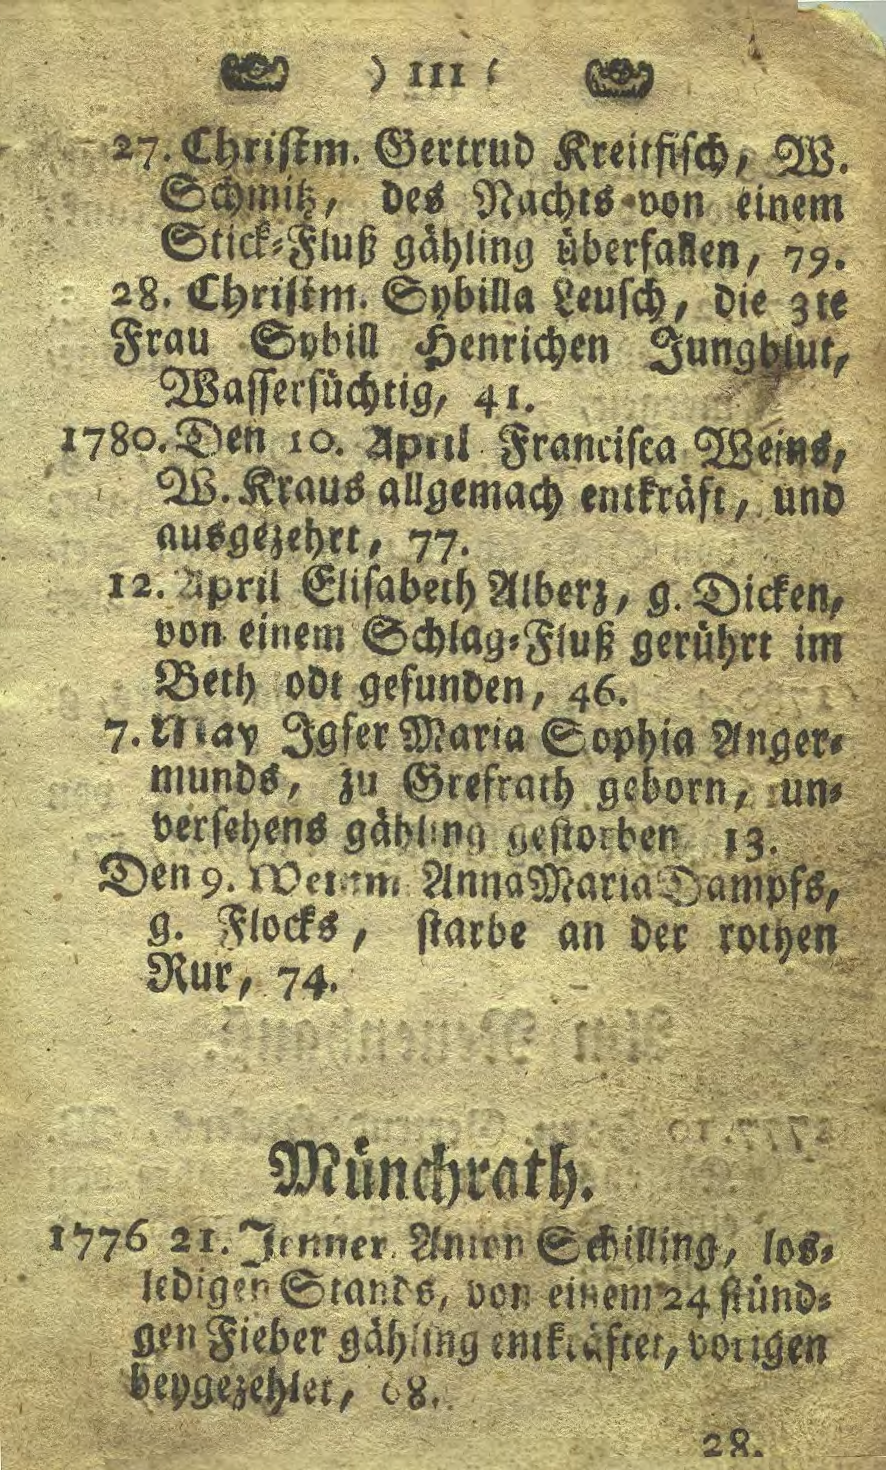 ) 111 (
27. Christm. Gertrud Kreitfisch, W.
Schmitz, des Nachts von einem
Stick-Fluß gähling überfallen, 79.
28. Christm. Sybilla Leusch, die 3te
Frau Sybill Henrichen Jungblut,
Wassersüchtig, 41.
1780. Den 10. April Francisca Weins,
W. Kraus allgemach entkräft, und
ausgezehrt, 77.
12. April Elisabeth Alberz, g. Dicken,
von einem Schlag-Fluß gerührt im
Beth odt gefunden, 46.
7. May Jgfer Maria Sophia Anger-
munds, zu Grefrath geborn, un-
versehens gähling gestorben 13.
Den 9. Anna Maria Dampfs,
g. Flocks, starbe an der rothen
Rur, 74.
Münchrath.
1776 21. Jenner Anton Schilling, los-
ledigen Stands, von einem 24 stünd-
gen Fieber gähling entkräftet, vorigen
beygezehlet, 68.
28.